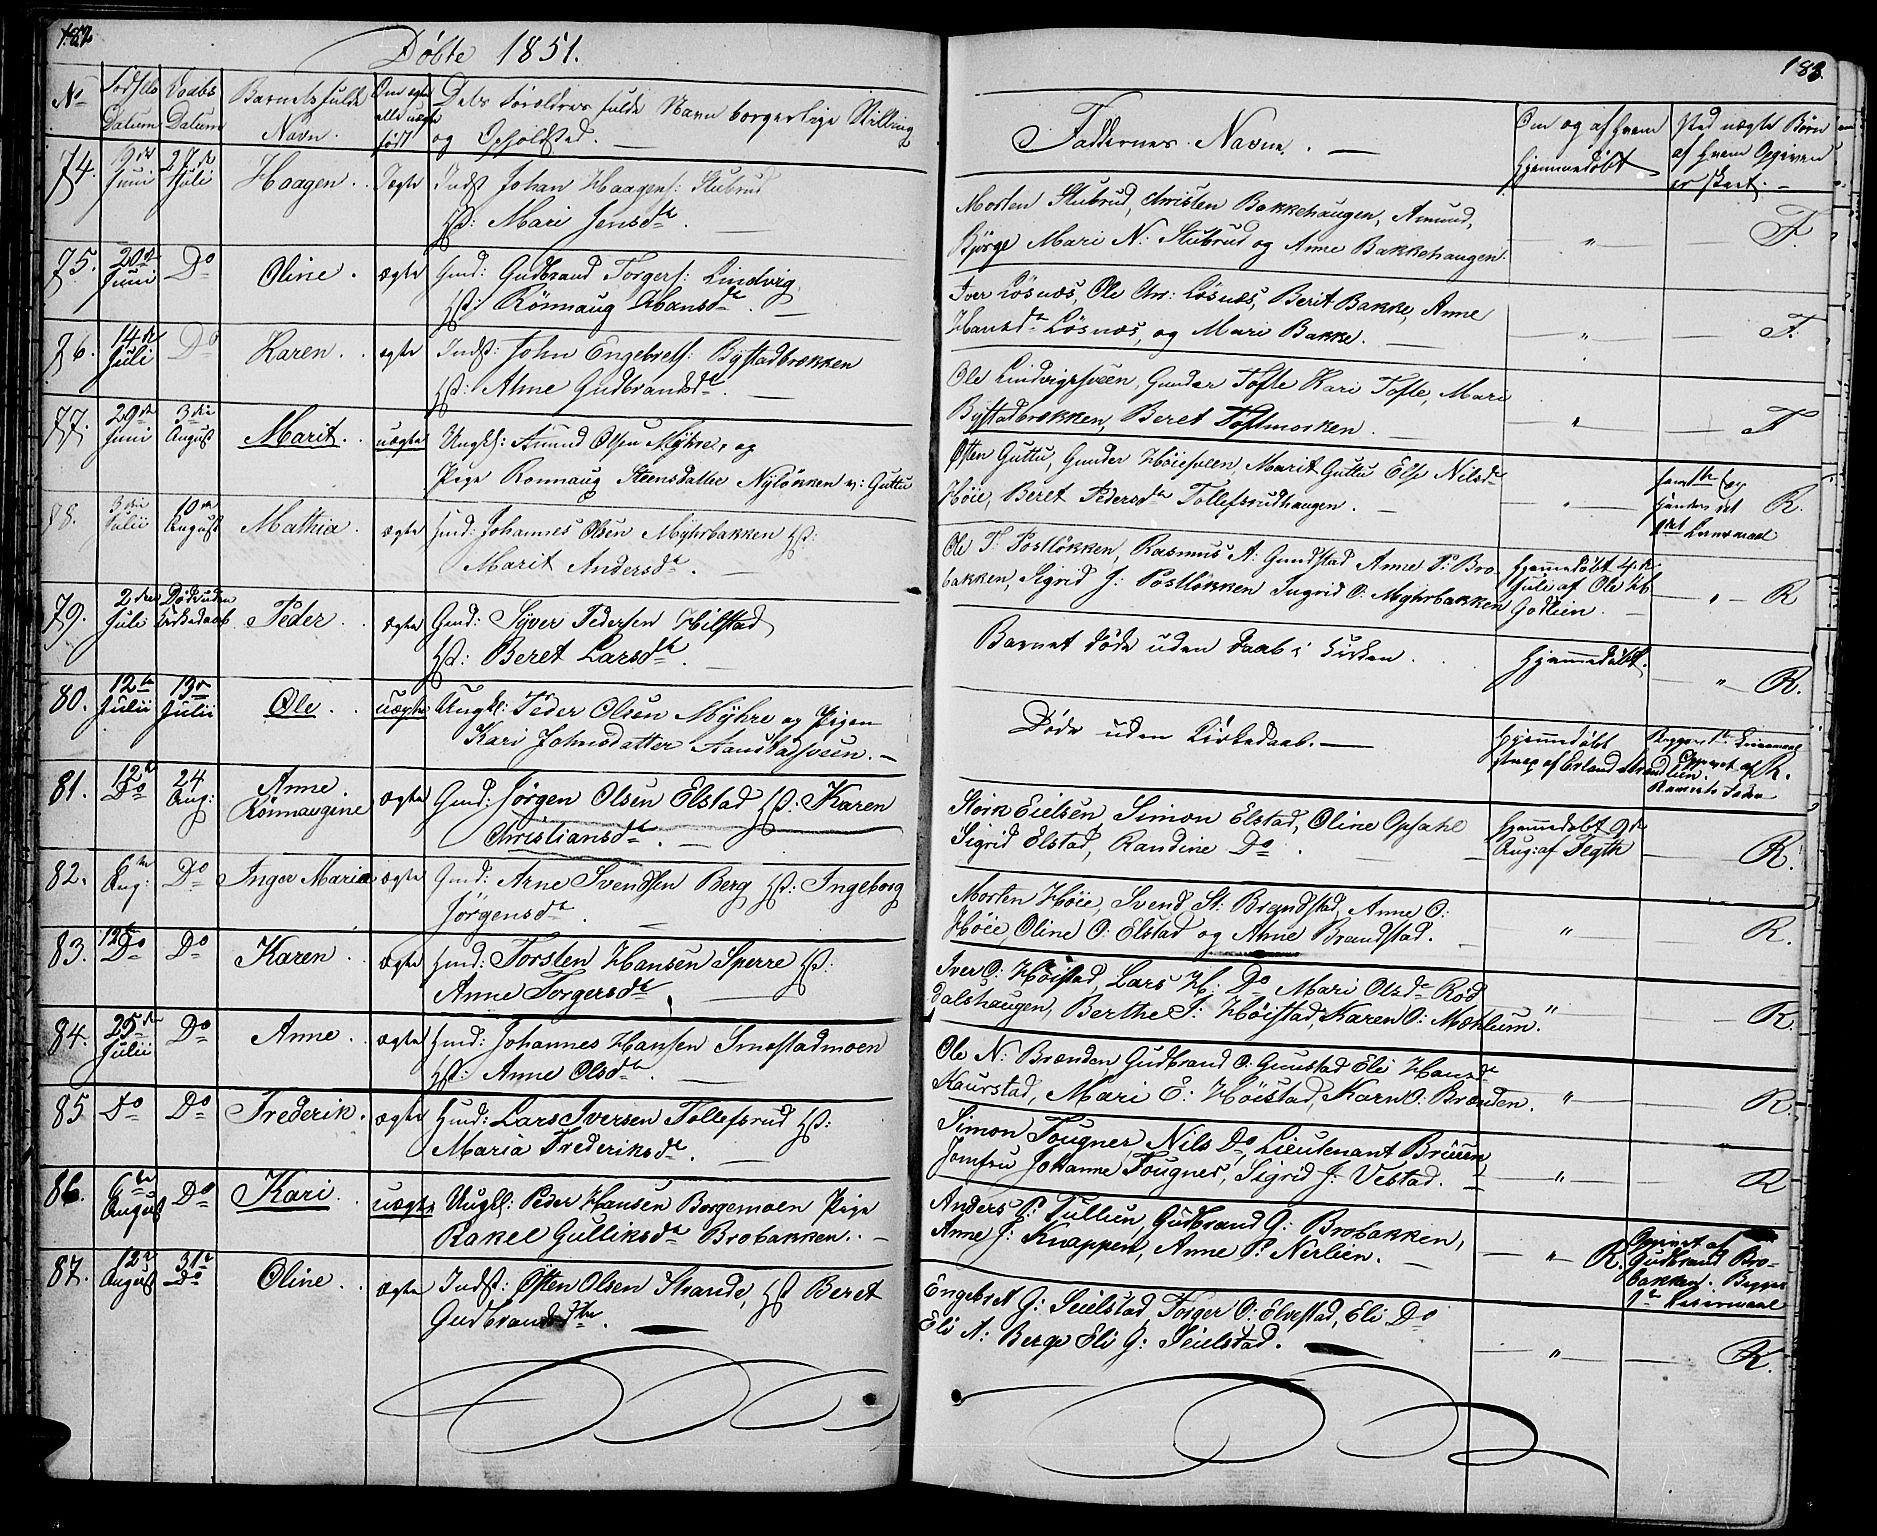 182
Døbte 1851.
No Fødsels Datum Daabs Datum Barnets fulde Navn. Om ægte eller uægte født Dets Forældres fulde Navn borgerlige Stilling og Opholdsted.
74. 9de Juni 27de Juli Haagen. Ægte Indst Johan Haagens: Stubrud
Hst: Mari Jensdtr.
75. 20de Juni Do Oline. ægte Gmd: Gudbrand Torgers: Lindvig,
Hst: Rönnaug Hansdtr.
76. 14de Juli Do Karen. ægte Indst: John Engebrets: Bystadbrækken
Hst: Anne Gudbrandsdtr.
77. 29de Juni 3die August Marit. uægte Ungkl: Amund Olsen Myhre, og
Pige Ronnaug Steensdatter Nyløkken v: Guttu
78. 3die Julii 10de August Mathia. ægte Hmd: Johannes Olsen Myhrbakken Hst:
Marit Andersdtr.
79. 2den Juli Døde uden Kirkedaab Peder. ægte Gmd: Syver Pedersen Hilstad
Hst: Beret Larsdtr.
80. 12te Julii 13de Julii Ole. uægte Ungkl: Peder Olsen Myhre og Pigen
Kari Johnsdatter Aanstadsveen.
81. 12te Do 24 Aug: Anne Rönnavgine ægte Gmd: Jörgen Olsen Elstad Hst: Karen
Christiansdtr.
82. 6te Aug: Do Inger Maria ægte Gmd: Arne Svendsen Berg Hst: Ingeborg
Jörgensdtr.
83. 12te Do Do Karen. ægte Hmd: Torsten Hansen Sperre Hst:
Anne Torgersdtr.
84. 25de Julii Do Anne. ægte Hmd: Johannes Hansen Smestadmoen
Hst: Anne Olsdtr.
85 Do Do Frederik. ægte Hmd: Lars Iversen Tollefsrud Hst:
Maria Frederiksdtr.
86. 6te August Do Kari. uægte Ungkl: Peder Hansen Borgemoen Pige
Rakel Gulliksdtr Brobakken.
87. 12te August 31te Do Oline. ægte Indst: Østen Olsen Strande, Hst Beret
Gudbrandsdtr.
183.
Faddernes Navne. Om og af hvem hjemmedøbt Ved uægte Børn af hvem Opgiven er skeet.
Morten Stubrud, Christen Bakkehaugen, Amund,
Kjörge Mari N: Stubrud og Anne Bakkehaugen. " F.
Iver Løsnæs, Ole Chr: Løsnæs, Berit Bakke, Anne
Hansdtr Løsnæs, og Mari Bakke. " F.
Ole Lindvigssveen, Gunder Tofte Kari Tofte, Mari
Bystadbrækken, Beret Toftmorken. " F
Østen Guttu, Gunder Høiesveen, Marit Guttu Else Nilsdr
Høie, Beret Pedersdtr Tollefsrudhaugen. " R.
Ole T: Postløkken, Rasmus A: Gunstad Anne P: Bro-
bakken, Sigrid J: Postløkken Ingrid O: Myhrbakken Hjemmedøbt 4de Juli af Ole Godlien. " R
Barnet døde uden Daab i Kirken. Hjemmedøbt. " R.
Døde uden Kirkedaab. Hjemmedøbt strax af Erland Strandlien. R.
Stork Eielsen, Simon Elstad, Oline Opsahl
Sigrid Elstad, Randine Do. Hjemmedøbt 9de Aug: af Fegth R.
Morten Høie, Svend St: Brandstad, Anne O:
Høie, Oline O: Elstad og Anne Brandstad. " R.
Iver O: Høistad, Lars H: Do Mari Olsdr Rød
dalshaugen, Berthe I: Høistad, Karen O: Mæhlum. " R.
Ole N: Brænden, Gudbrand O: Gunstad Eli Hansdtr
Kaurstad, Mari E: Höistad, Karn O: Brænden. " R.
Simon Tougner, Nils Do, Lieutenant Brüun
Jomfru Johanne Tougner, Sigrid J: Vestad. " R
Anders P: Tullien, Gudbrand G: Brobakken,
Anne J: Knappen, Anne P: Nerlien. " R. Opgivet af Gudbrand Bro-
bakken. Begges 1te Leiermaal
Engebret G: Seielstad, Torger O: Elvestad, Eli Do
Eli A: Berge Eli G: Seielstad. " R.